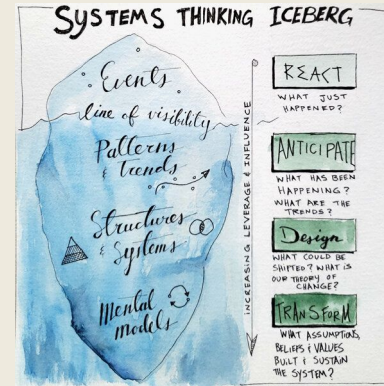 SYSTEMS THINKING ICEBERG
Events
line of visibility
Patterns
& trends
Structures
& Systems
Mental
models
INCREASING LEVERAGE & INFLUENCE
REACT
WHAT JUST
HAPPENED?
ANTICIPATE
WHAT HAS BEEN
HAPPENING?
WHAT ARE THE
TRENDS?
Design
WHAT COULD BE
SHIFTED? WHAT IS
OUR THEORY OF
CHANGE?
TRANSFORM
WHAT ASSUMPTIONS,
BELIEFS & VALUES
BUILT & SUSTAIN
THE SYSTEM?